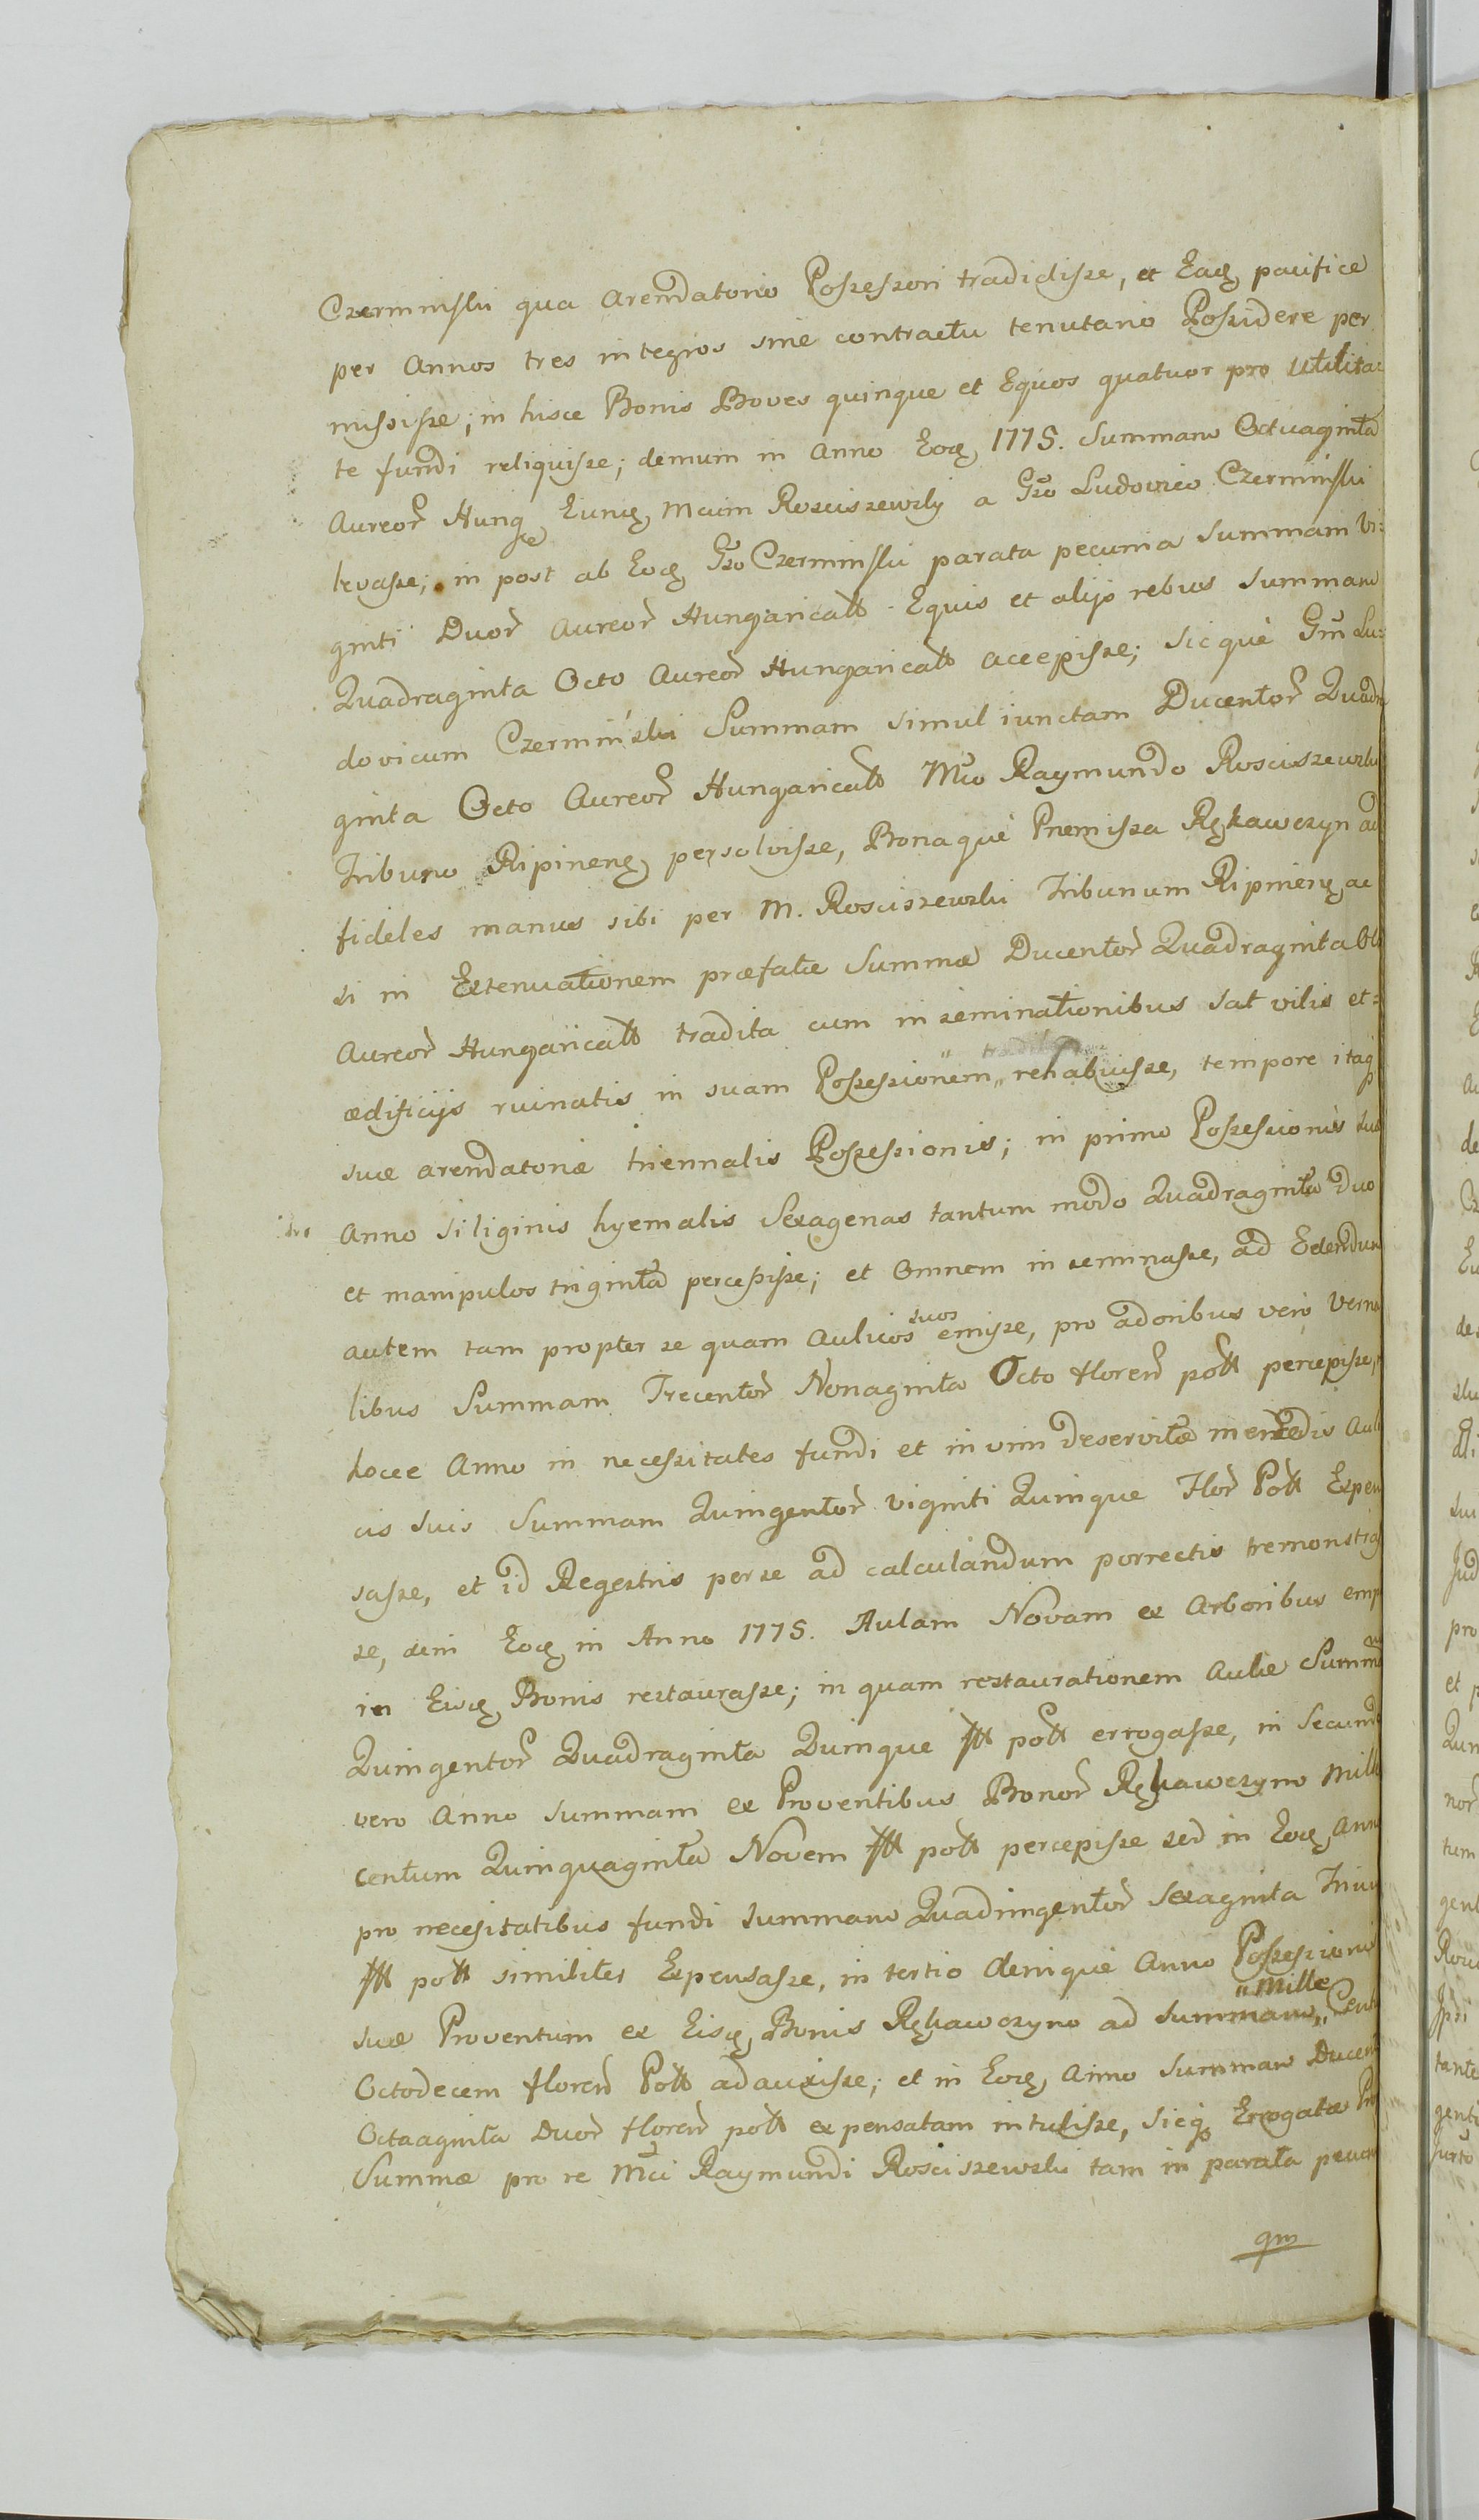 Czerminski qua arendatorio Possessori tradidisse, et Eaq pacifice
per Annos tres integros sine contractu tenutario Possidere per
mississe; in hisce Bonis Boves quinque et Equos quatuor pro Utilita
te fundi reliquisse; demum in Anno Eoq 1775. Summam Octuaginta
Aureor Hung Eunq Mcum Rosciszewsky a Gso Ludovico Czerminski
levasse; in post ab Eoq Gso Czerminski parata pecunia Summam Vi=
ginti Duor Aureor Hungaricall Equis et alijs rebus Summam
Quadraginta Octo Aureor Hungaricall accepisse; Sicque Gm Lu=
dovicum Czerminski Summam simul iunctam Ducentor Quadra
ginta Octo Aureor Hungaricall Mco Raymundo Rosciszewski
Tribuno Ripinenq persolvisse, Bonaque Premissa Rękawczyn ad
fideles manus sibi per M. Rosciszewski Tribunum Ripinenq ac
si in Extenuationem præfatæ Summæ Ducentor Quadraginta Oct
Aureor Hungaricall tradita cum inseminationibus sat vilis et=
ædificijs ruinatis in suam Possessionem „ rehabuisse, tempore itaq
suæ arendatoriæ triennalis Possessionis; in primo Possessionis suæ
Anno siliginis hyemalis Sexagenas tantum modo Quadraginta Duo
et manipulos triginta percepisse; et Omnem inseminasse, ad Edendum
autem tam propter se quam Aulicos suos emisse, pro adoribus vero Verna
libus Summam Trecentor Nonaginta Octo floren poll percepisse,
hocce Anno in necessitates fundi et in vim deservitæ mercedis Auli
cis suis Summam Quingentor viginti Quinque Flor Poll Expen
sasse, et id Regestris per se ad calculandum porrectis remonstras
se, dein Eoq in Anno 1775. Aulam Novam ex Arboribus emp
in Eisq Bonis restaurasse; in quam restaurationem Aulæ Summam
Quingentor Quadraginta Quinque fll poll errogasse, in Secundo
vero Anno Summam ex Proventibus Bonor Rękawczyno Mille
centum Quinquaginta Novem fll poll percepisse sed in Eoq Anno
pro necesitatibus fundi Summam Quadringentor Sexaginta Trium
fll poll similiter Expensasse, in tertio denique Anno Possessionis
suæ Proventum ex Eisq Bonis Rękawczyno ad Summam „Mille„ Centum
Octodecem floren Poll adauxisse; et in Eoq Anno Summam Ducent
Octaaginta Duor floren poll expensatam intulisse, Sicq Errogatæ
Summæ pro re Mci Raymundi Rosciszewski tam in parata pecun
qm